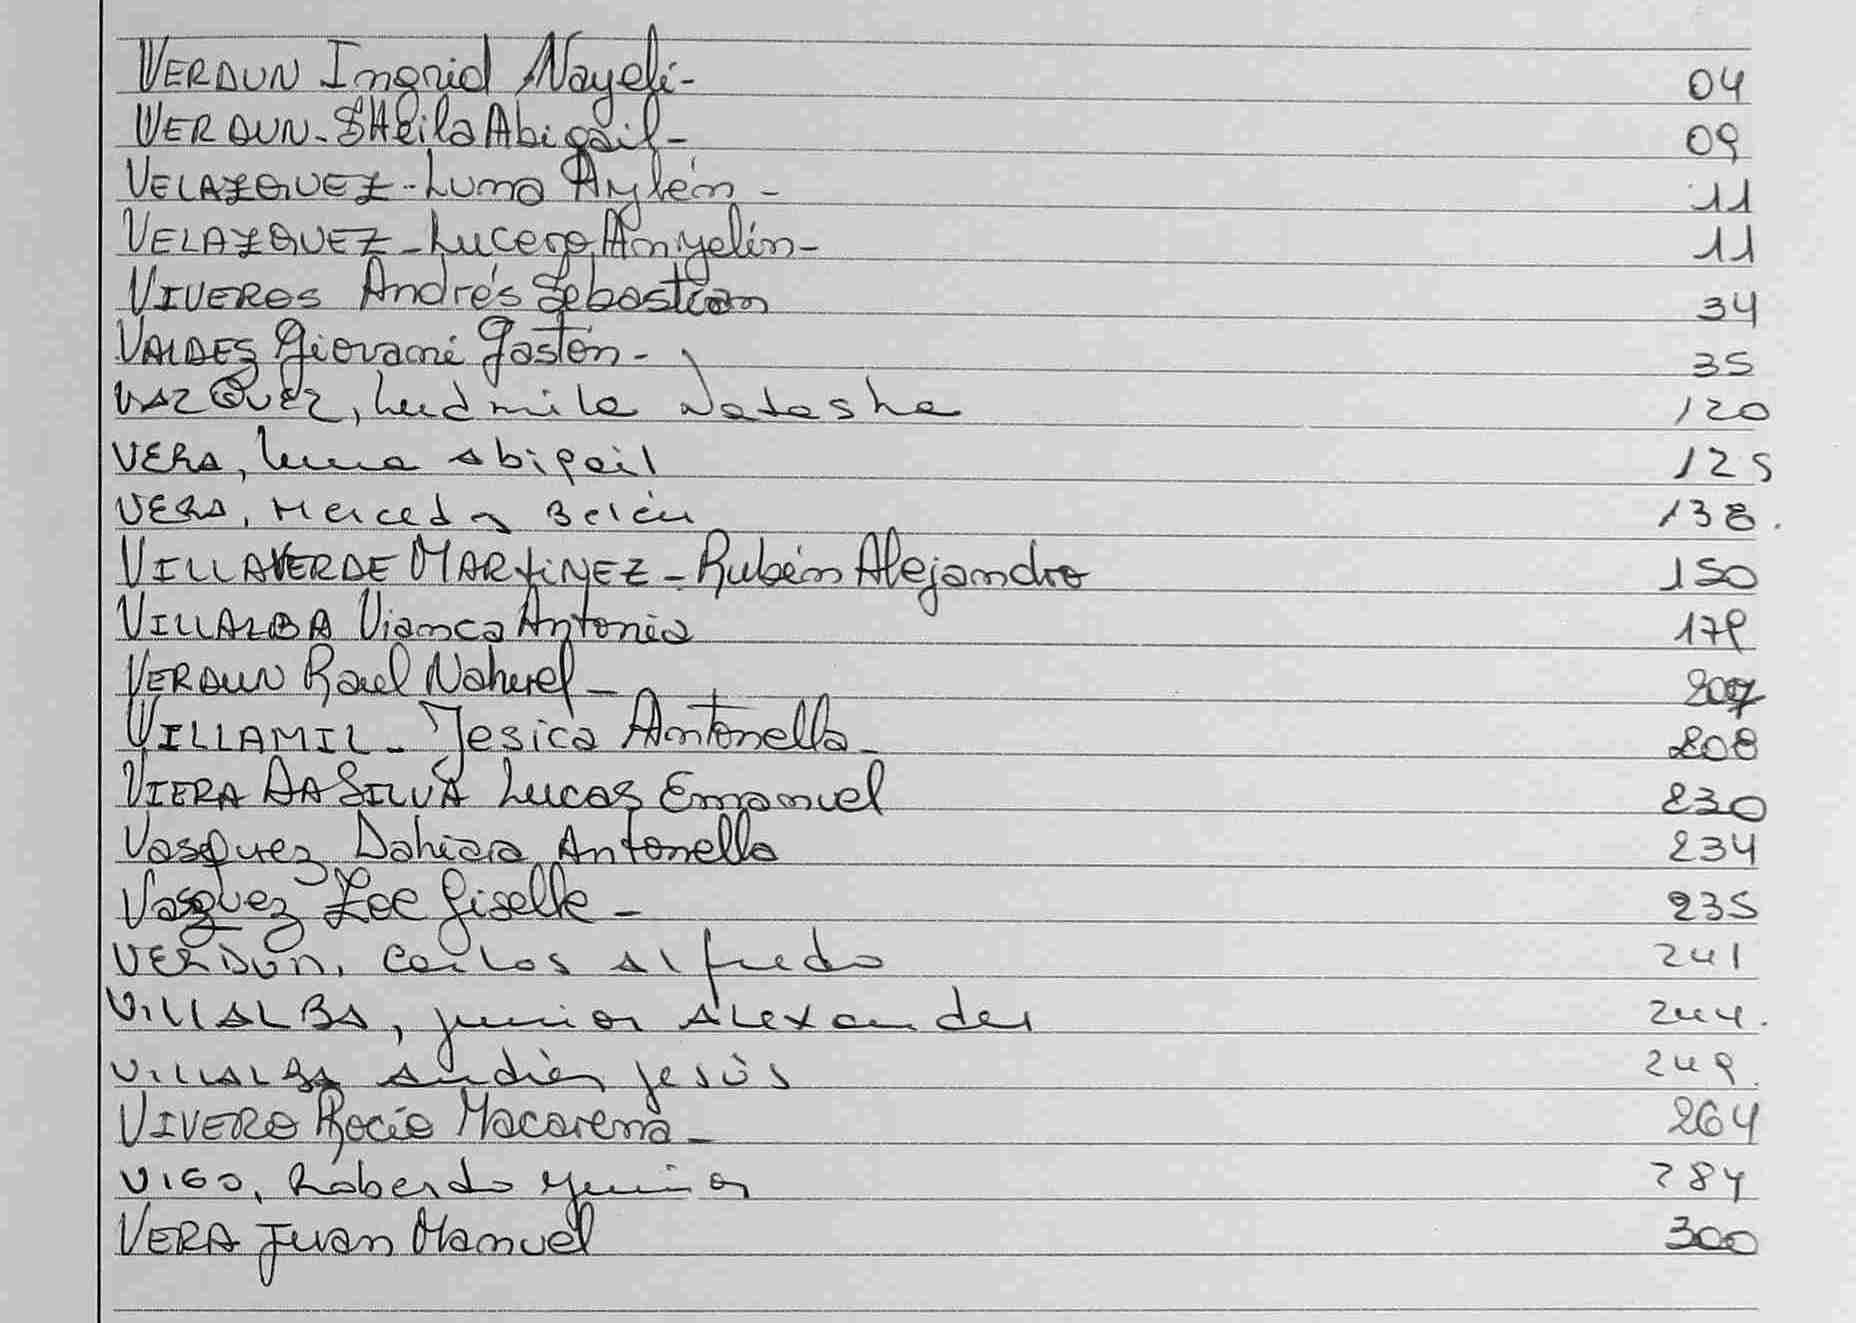 VERDUN Ingrid Nayeli- 04
VERDUN-SHeila Abigail- 09
VELAZQUEZ-Luna Aylén- 11
VELAZQUEZ-Lucero Anyelin- 11
VIVEROS Andrés Sebastian 34
VALDES Giovani Gastón- 35
VAZQUEZ, Ludmila Natasha 120
VERA, Luna Abigail 125
VERA, Mercedes Belén 138.
VILLAVERDE MARTINEZ-Rubén Alejandro 150
VILLALBA Vianca Antonia 179
VERDUN Raul Nahuel- 207
VILLAMIL- Jesica Antonella- 208
VIERA DA SILVA Lucas Emanuel 230
Vasquez Dahiara Antonella 234
Vasquez Zoe Giselle- 235
VERDÚN, Carlos Alfredo 241
VILLALBA, Junior Alexander 244.
VILLALBA Andrés Jesús 249.
VIVERO Rocío Macarena- 264
VIGO, Roberto Junior 284
VERA Juan Manuel 300